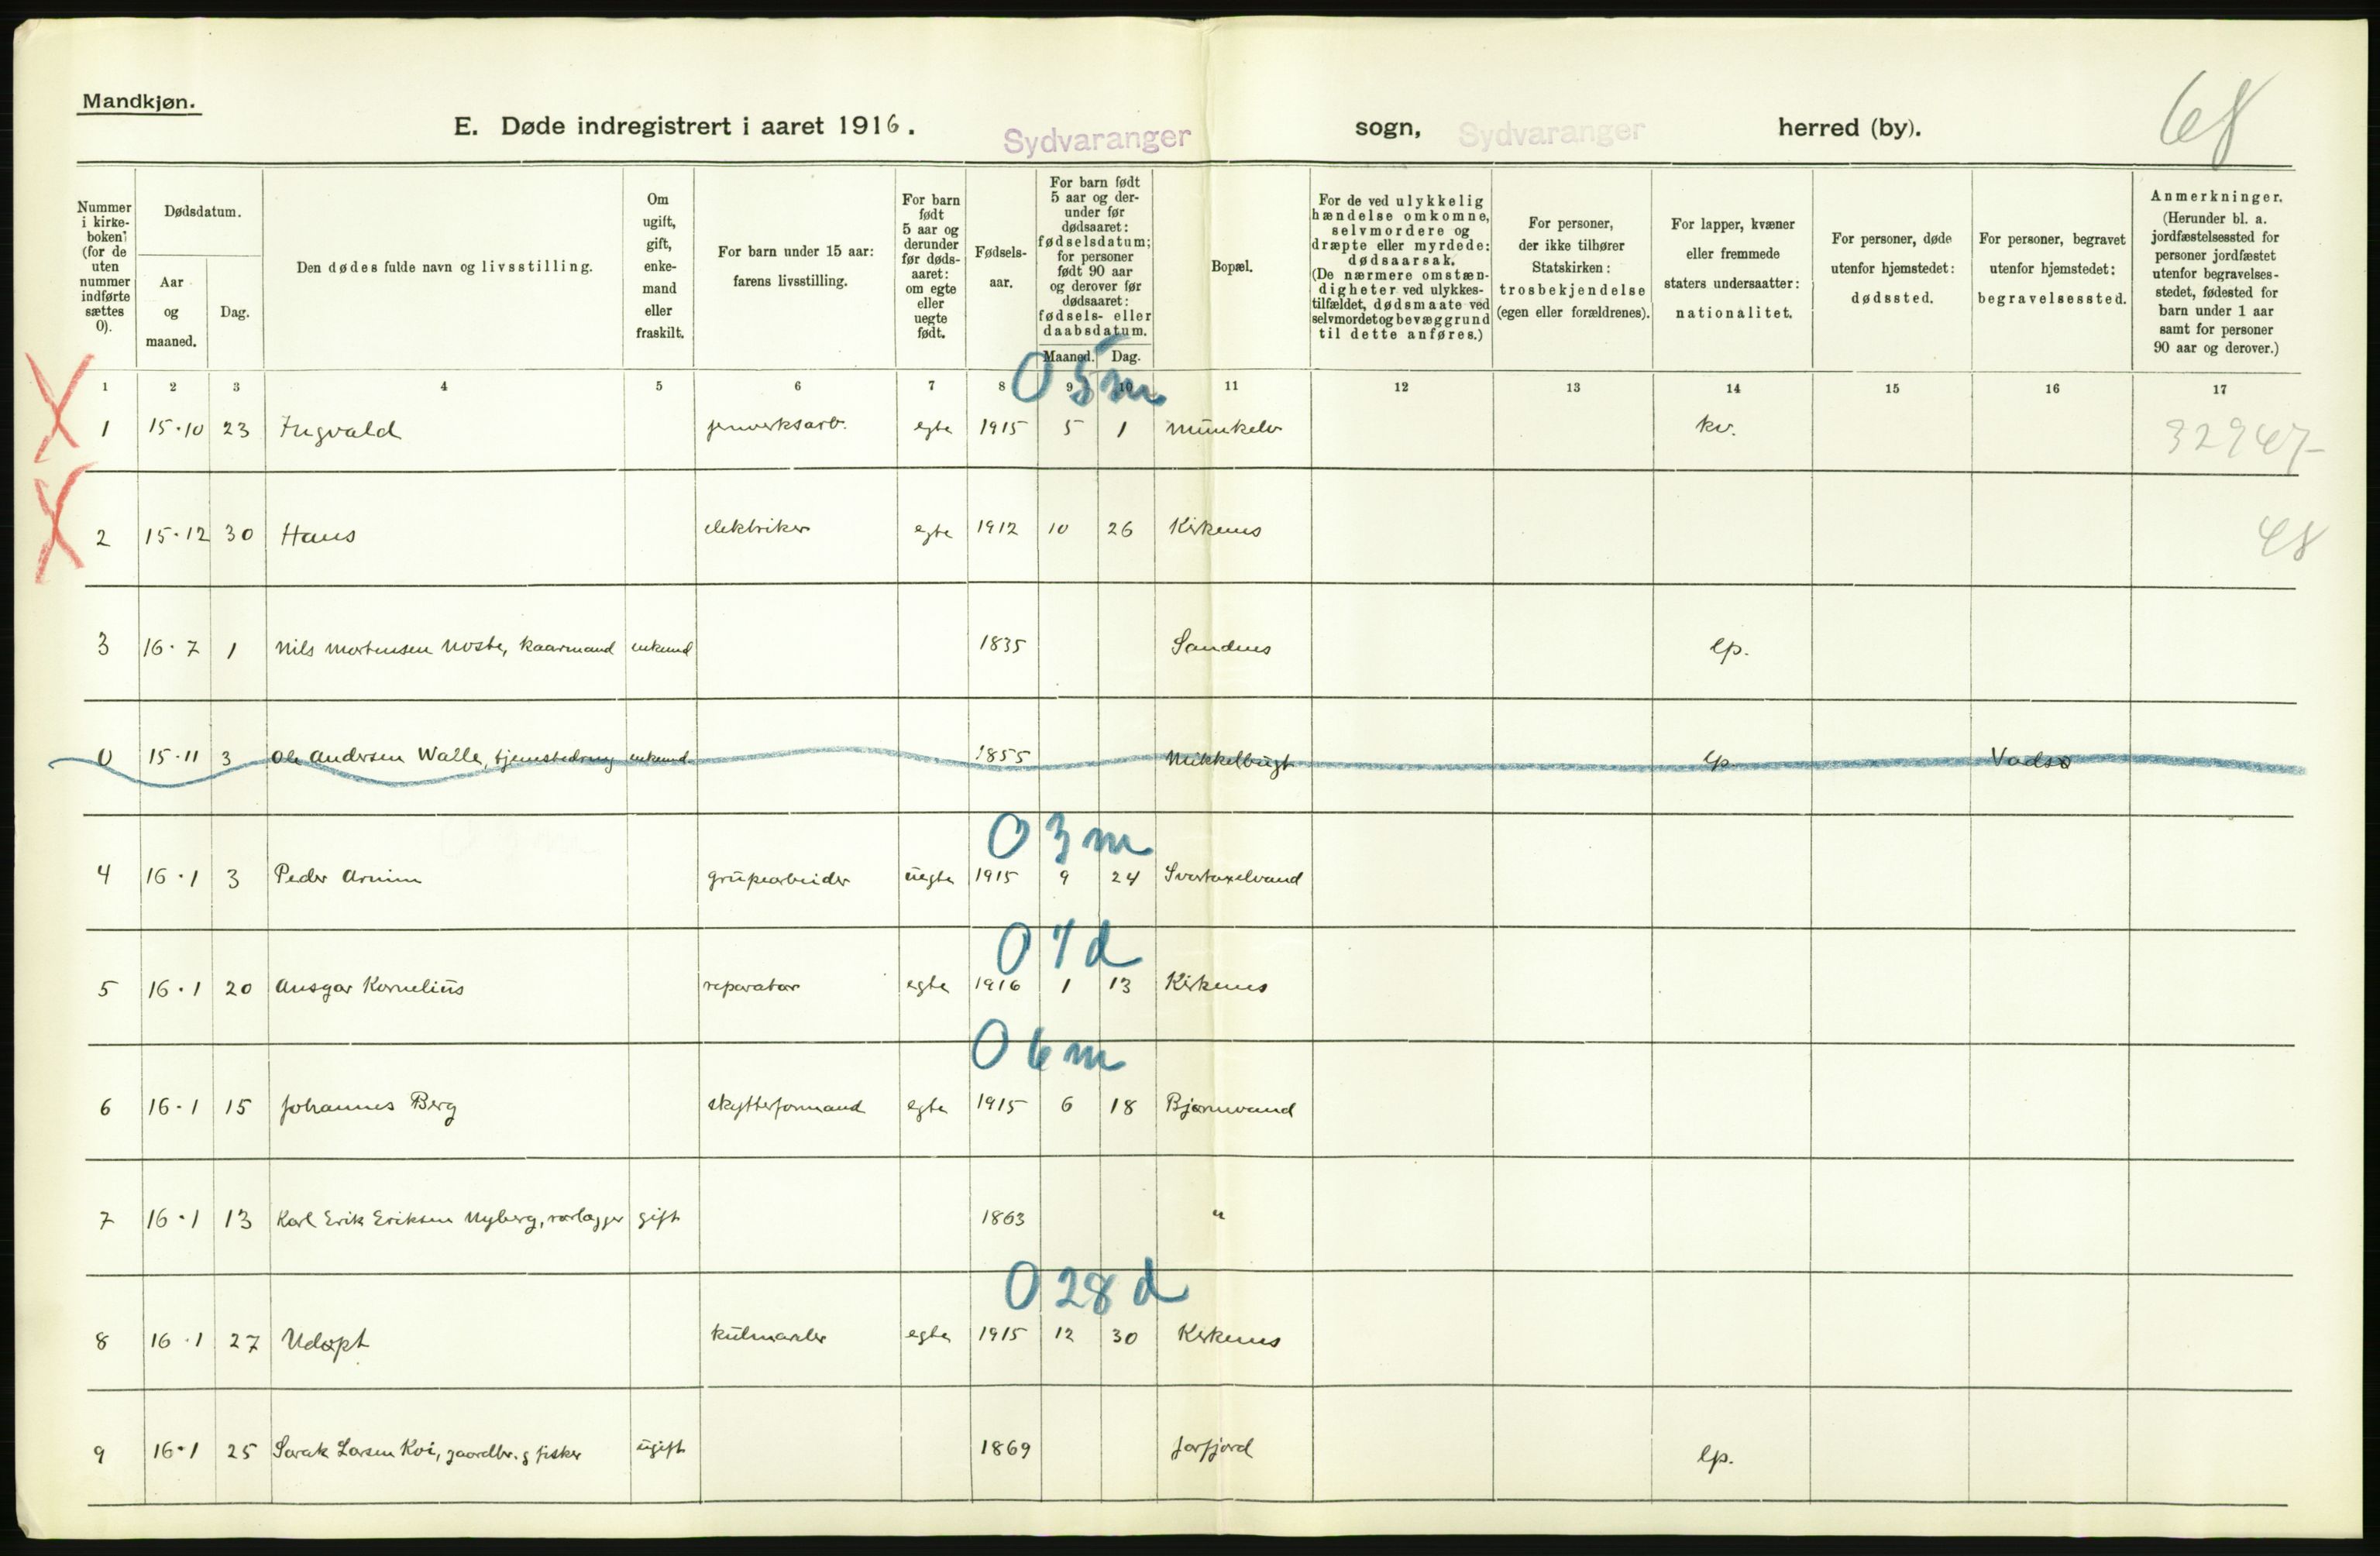 Mandkjøn.
E. Døde indregistrert i aaret 1916. Sydvaranger sogn, Sydvaranger herred (by).
68
Nummer i kirke-boken (for de uten nummer indførte sættes 0).
Dødsdatum.
Aar og maaned.
Dag.
Den dødes fulde navn og livsstilling.
Om ugift, gift, enke-mand eller fraskilt.
For barn under 15 aar: farens livsstilling.
For barn født 5 aar og derunder før døds-aaret: om egte eller uegte født.
Fødsels-aar.
For barn født 5 aar og der-under før dødsaaret: fødselsdatum; for personer født 90 aar og derover før dødsaaret: fødsels- eller daabsdatum.
Maaned. Dag.
Bopæl.
For de ved ulykkelig hændelse omkomne, selvmordere og dræpte eller myrdede: dødsaarsak. (De nærmere omstæn-digheter ved ulykkes-tilfældet, dødsmaate ved selvmordet og bevæggrund til dette anføres.)
For personer, der ikke tilhører Statskirken: trosbekjendelse (egen eller forældrenes).
For lapper, kvæner eller fremmede staters undersaatter: nationalitet.
For personer, døde utenfor hjemstedet: dødssted.
For personer, begravet utenfor hjemstedet: begravelsessted.
Anmerkninger. (Herunder bl. a. jordfæstelsessted for personer jordfæstet utenfor begravelses-stedet, fødested for barn under 1 aar samt for personer 90 aar og derover.)
1 2 3 4 5 6 7 8 9 10 11 12 13 14 15 16 17
0 5 m
1 15·10 23 Ingvald jernverksarb. egte 1915 5 1 Munkelv kv. 32947
2 15·12 30 Hans elektriker egte 1912 10 26 Kirkenes 48
3 16·7 1 Nils Mortensen Noste, kaarmand enkemd 1835 Sandnes lp.
0 15·11 3 Ole Andersen Walle, tjenestedreng enkemd. 1855 Mikkelbugt lp. Vadsø
0 3 m
4 16·1 3 Peder Armin grubearbeider uegte 1915 9 24 Svartaxelvand
0 7 d
5 16·1 20 Ansgar Kornelius reparatør egte 1916 1 13 Kirkenes
0 6 m
6 16·1 15 Johannes Berg skytterformand egte 1915 6 18 Bjørnevand
7 16·1 13 Karl Erik Eriksen Nyberg, rørlægger gift 1863 "
0 28 d
8 16·1 27 Udøpt egte 1915 12 30 Kirkenes
9 16·1 25 Sarak Larsen Koi, gaardbr. g fisker ugift 1869 Jarfjord lp.